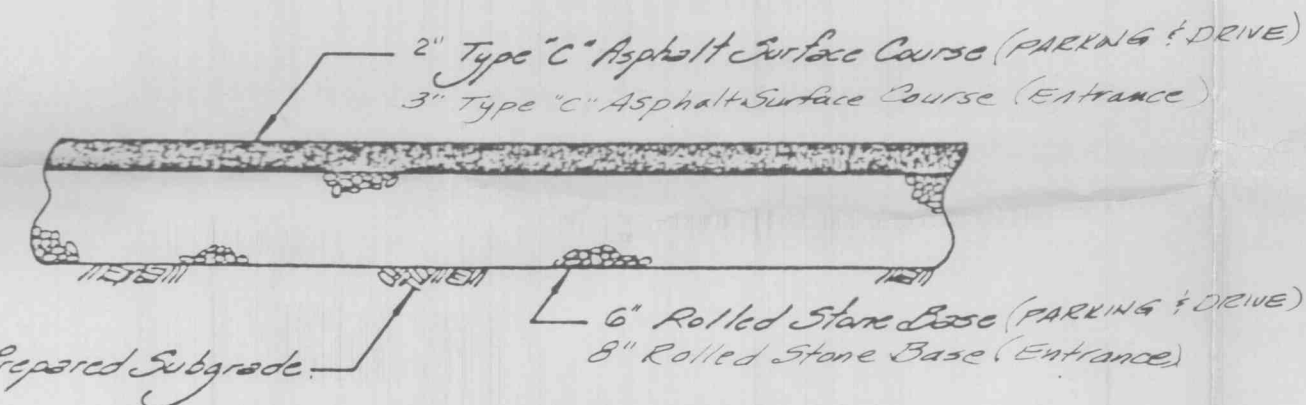 2" Type "C" Asphalt Surface Course (PARKING & DRIVE)
3" Type "C" Asphalt Surface Course (Entrance)
6" Rolled Stone Base (PARKING & DRIVE)
8" Rolled Stone Base (Entrance)
Prepared Subgrade